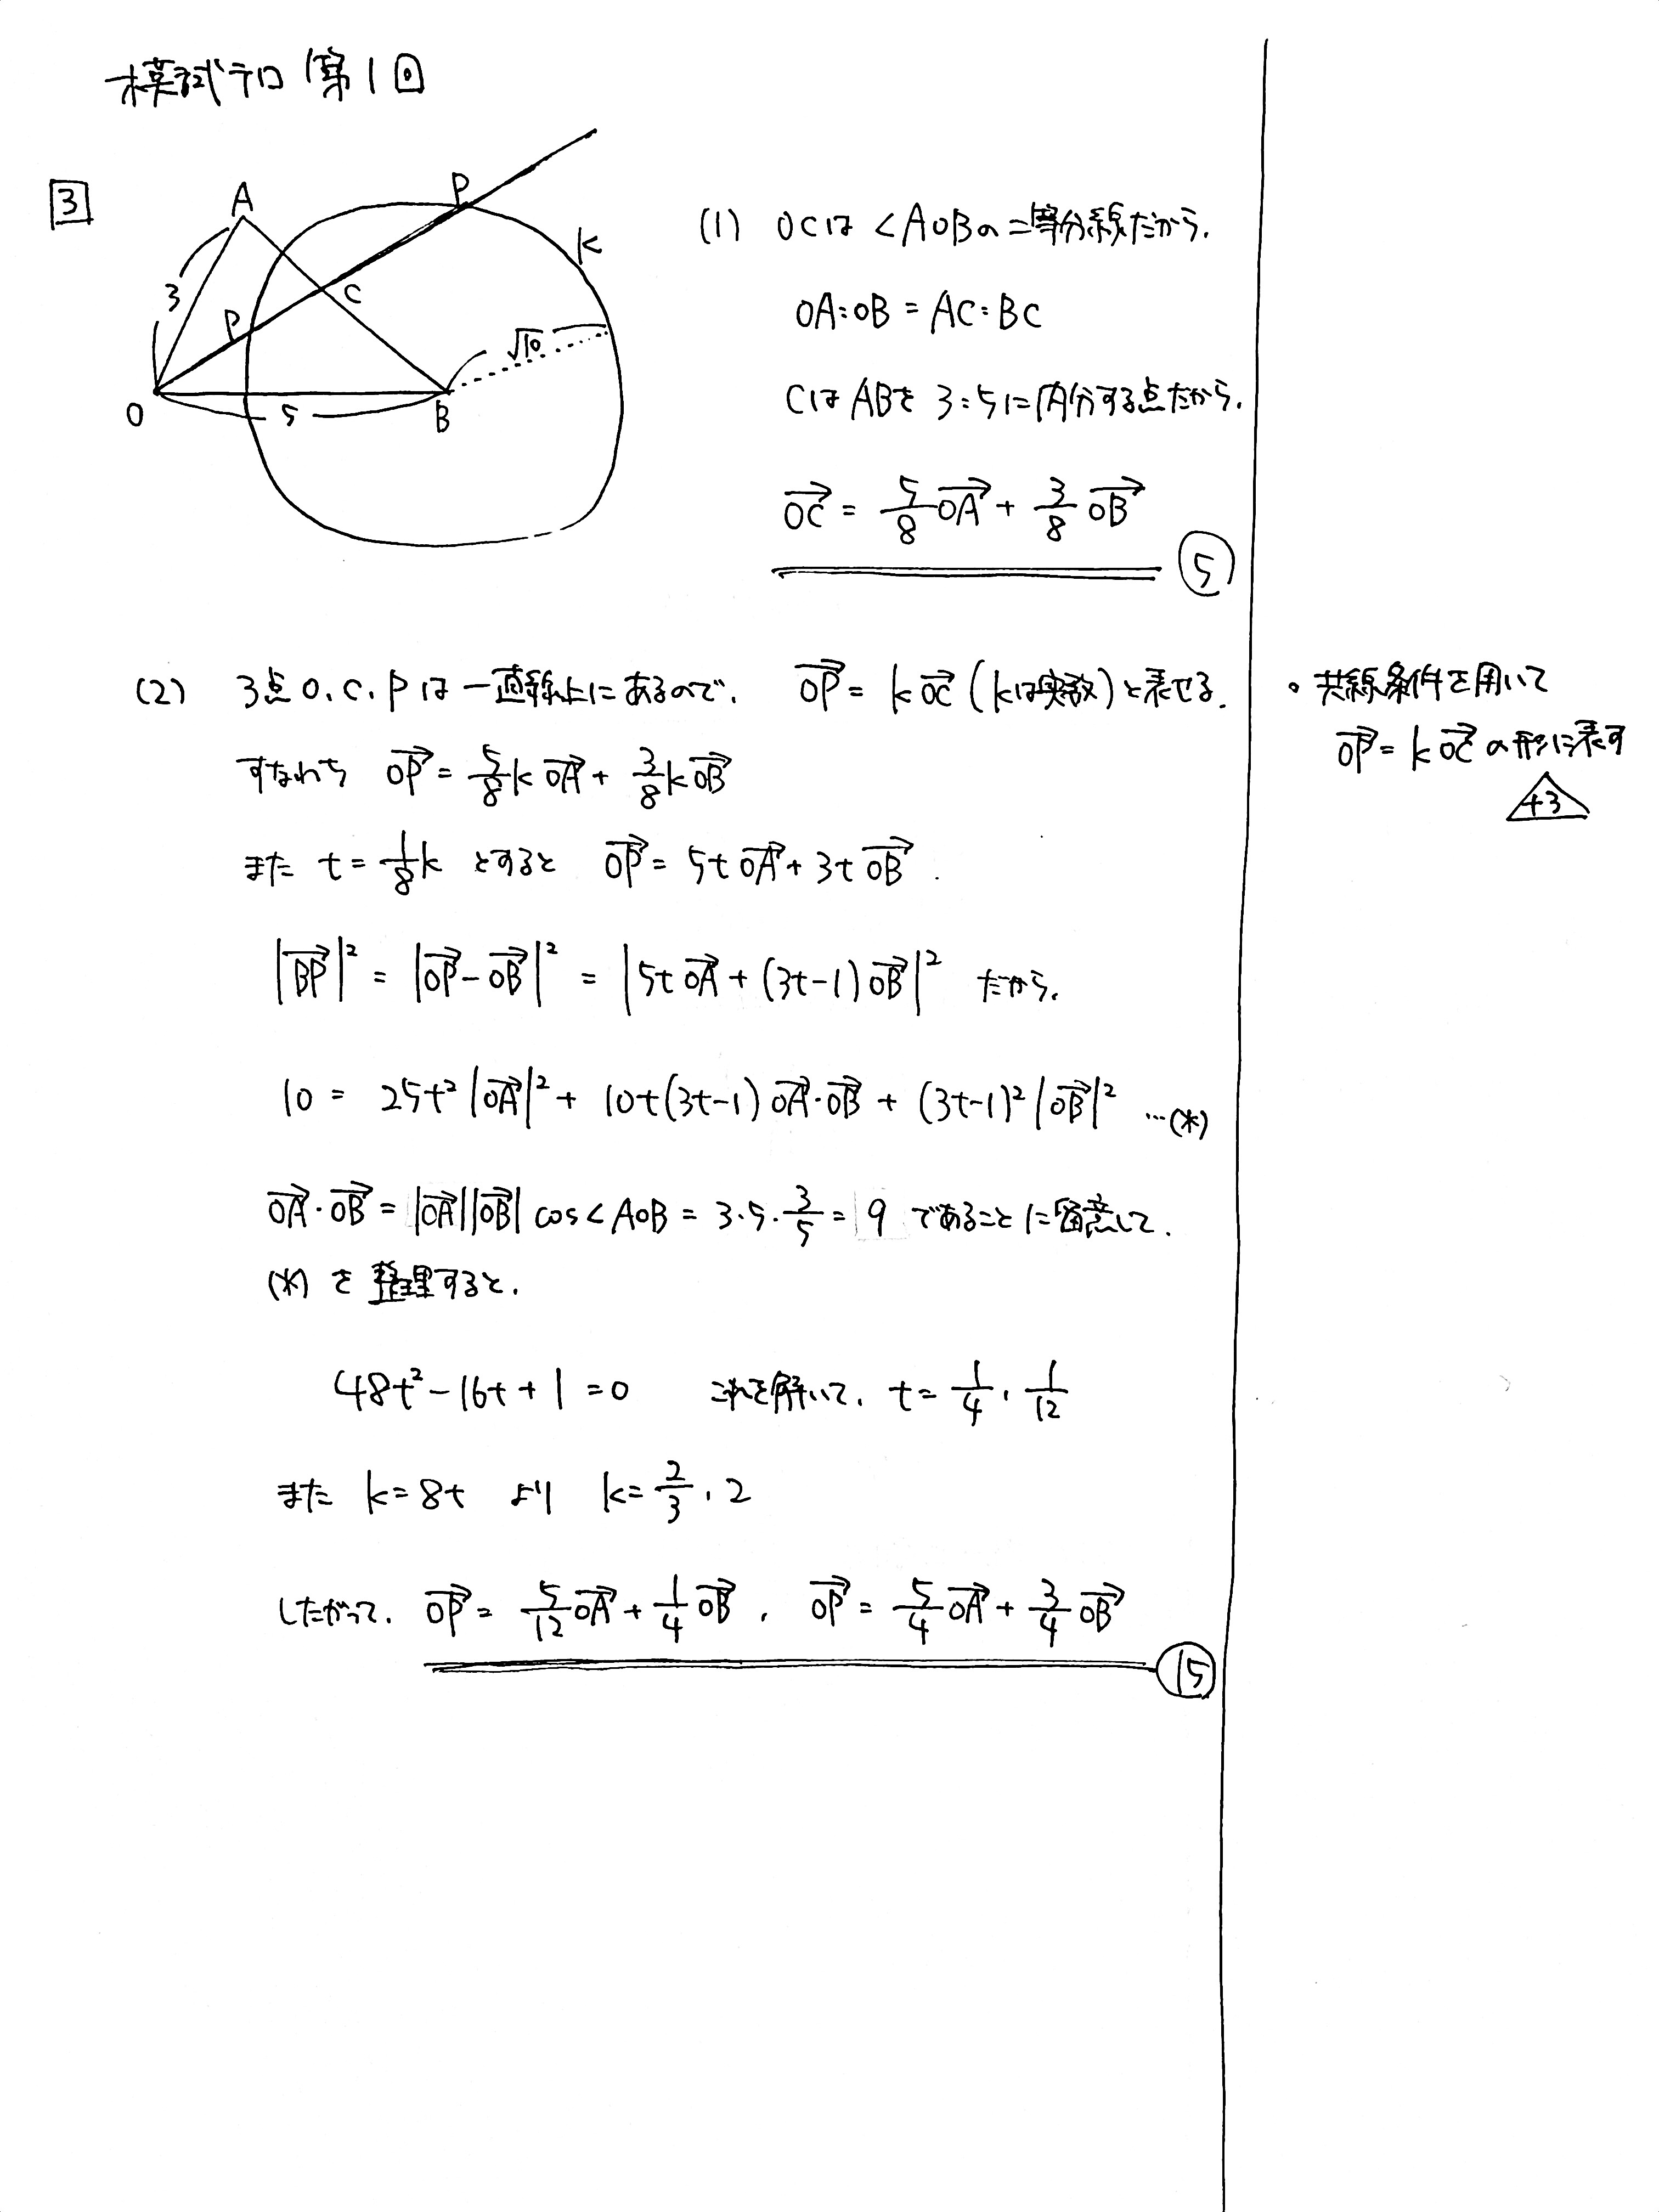 模試テロ 第1回
3
A
P
K
3
C
P
√10
O
5
B
(1) OCは∠AOBの二等分線だから.
OA:OB = AC:BC
CはABを3:5に内分する点だから.
→OC = 5/8 →OA + 3/8 →OB
5
(2) 3点O,C,Pは一直線上にあるので, →OP = k→OC (kは実数)と表せる.
すなわち →OP = 5/8 k→OA + 3/8 k→OB
また t = 1/8 k とすると →OP = 5t→OA + 3t→OB.
|→BP|² = |→OP - →OB|² = |5t→OA + (3t-1)→OB|² だから,
10 = 25t²|→OA|² + 10t(3t-1)→OA・→OB + (3t-1)²|→OB|² …(*)
→OA・→OB = |→OA||→OB| cos∠AOB = 3・5・3/5 = 9 であることに留意して,
(*)を整理すると,
48t² - 16t + 1 = 0 これを解いて, t = 1/4, 1/12
また k = 8t より k = 2/3, 2
したがって, →OP = 5/12 →OA + 1/4 →OB, →OP = 5/4 →OA + 3/4 →OB
15
・共線条件を用いて
→OP = k→OC の形に表す
+3